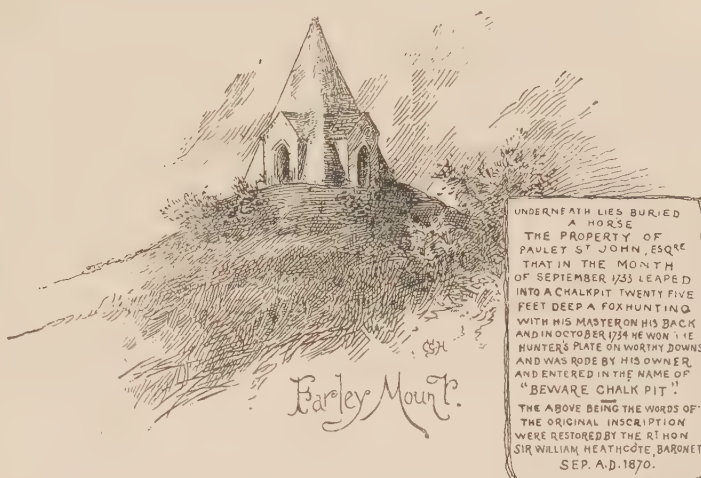 GSH
Farley Mount.
UNDERNEATH LIES BURIED
A HORSE
THE PROPERTY OF
PAULEY ST JOHN, ESQRE
THAT IN THE MONTH
OF SEPTEMBER 1733 LEAPED
INTO A CHALKPIT TWENTY FIVE
FEET DEEP A FOXHUNTING
WITH HIS MASTER ON HIS BACK
AND IN OCTOBER 1734 HE WON THE
HUNTER'S PLATE ON WORTHY DOWNS
AND WAS RODE BY HIS OWNER
AND ENTERED IN THE NAME OF
"BEWARE CHALK PIT".
THE ABOVE BEING THE WORDS OF
THE ORIGINAL INSCRIPTION
WERE RESTORED BY THE RT HON
SIR WILLIAM HEATHCOTE, BARONET
SEP. A.D. 1870.